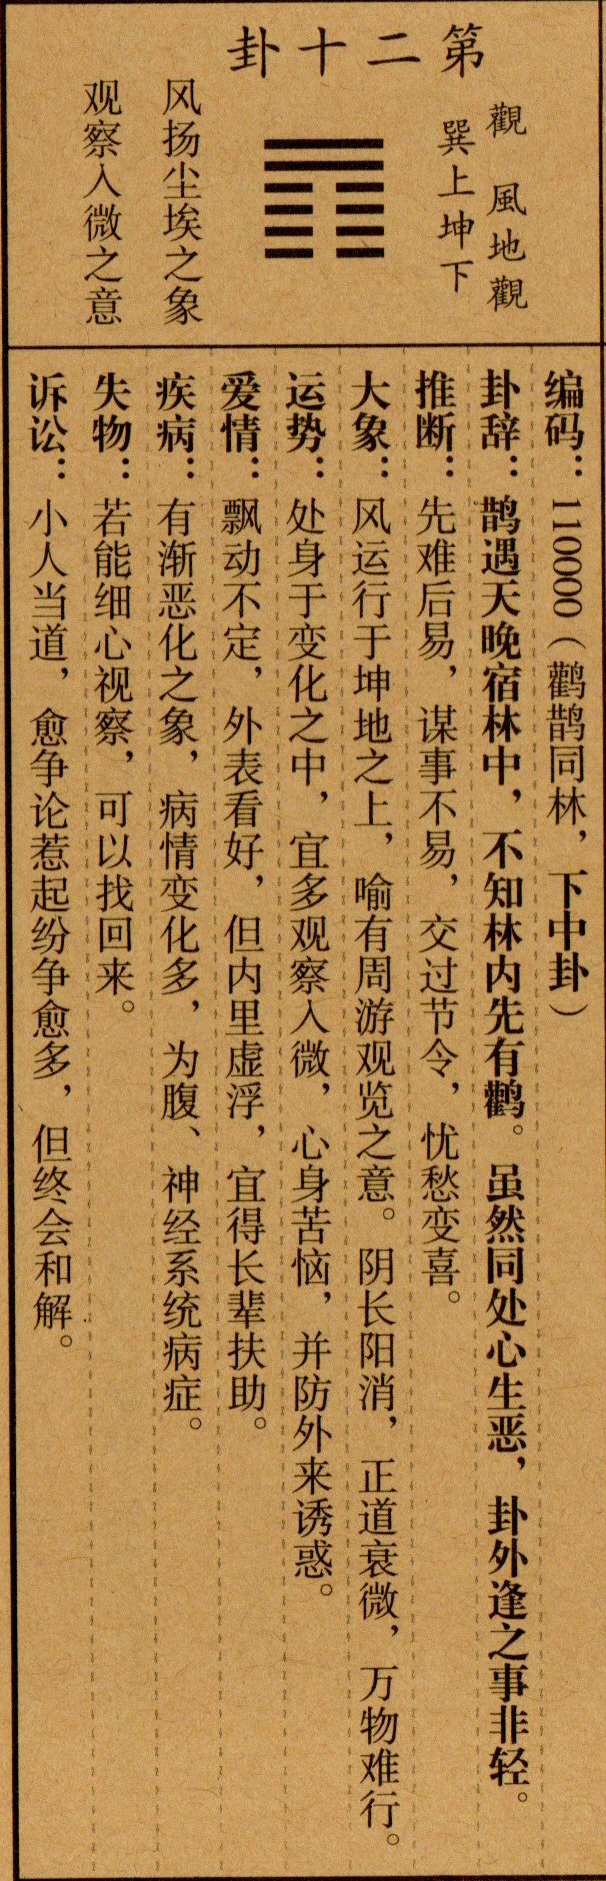 卦十二第
觀 風地觀
巽上坤下
风扬尘埃之象
观察入微之意
编码：110000（鹳鹊同林，下中卦）
卦辞：鹊遇天晚宿林中，不知林内先有鹳。虽然同处心生恶，卦外逢之事非轻。
推断：先难后易，谋事不易，交过节令，忧愁变喜。
大象：风运行于坤地之上，喻有周游观览之意。阴长阳消，正道衰微，万物难行。
运势：处身于变化之中，宜多观察入微，心身苦恼，并防外来诱惑。
爱情：飘动不定，外表看好，但内里虚浮，宜得长辈扶助。
疾病：有渐恶化之象，病情变化多，为腹、神经系统病症。
失物：若能细心视察，可以找回来。
诉讼：小人当道，愈争论惹起纷争愈多，但终会和解。